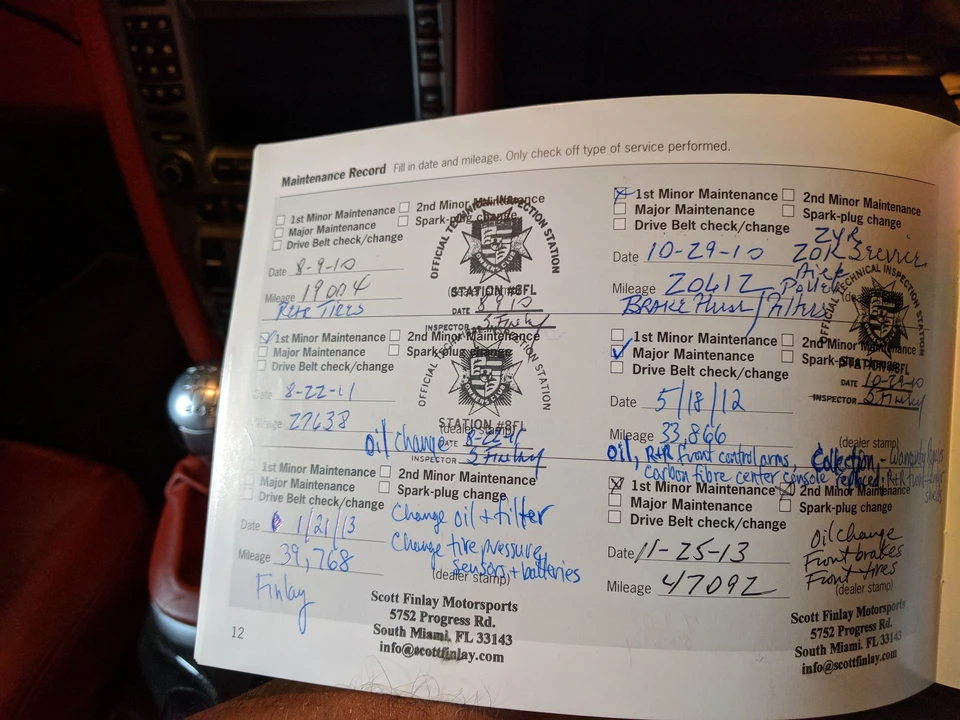 Maintenance Record Fill in date and mileage. Only check off type of service performed.
1st Minor Maintenance 2nd Minor Maintenance
Major Maintenance Spark-plug change
Drive Belt check/change
OFFICIAL TECHNICAL INSPECTION STATION
Date 8-9-10
Mileage 19004
STATION #8FL
DATE 8 9 10
INSPECTOR S Finlay
Tires
1st Minor Maintenance 2nd Minor Maintenance
Major Maintenance Spark-plug change
Drive Belt check/change
Date 10-29-10
Mileage 20412
Brake Flush / Filters
OFFICIAL TECHNICAL INSPECTION STATION
STATION #8FL
DATE 10-29-10
INSPECTOR S Finlay
1st Minor Maintenance 2nd Minor Maintenance
Major Maintenance Spark-plug change
Drive Belt check/change
Date 8-22-11
Mileage 27638
(dealer stamp)
oil change
STATION #8FL
DATE 8-22-11
INSPECTOR S Finlay
1st Minor Maintenance 2nd Minor Maintenance
Major Maintenance Spark-plug change
Drive Belt check/change
Date 5/18/12
Mileage 33,866
(dealer stamp)
oil, R+R front control arms,
carbon fibre center console replaced,
1st Minor Maintenance 2nd Minor Maintenance
Major Maintenance Spark-plug change
Drive Belt check/change
Date 1/21/13
Mileage 39,768
Change oil + filter
Change tire pressure
sensors + batteries
(dealer stamp)
Finlay
Scott Finlay Motorsports
5752 Progress Rd.
South Miami, FL 33143
info@scottfinlay.com
1st Minor Maintenance 2nd Minor Maintenance
Major Maintenance Spark-plug change
Drive Belt check/change
Date 11-25-13
Mileage 47092
Oil change
Front brakes
Front tires
(dealer stamp)
Scott Finlay Motorsports
5752 Progress Rd.
South Miami, FL 33143
info@scottfinlay.com
12